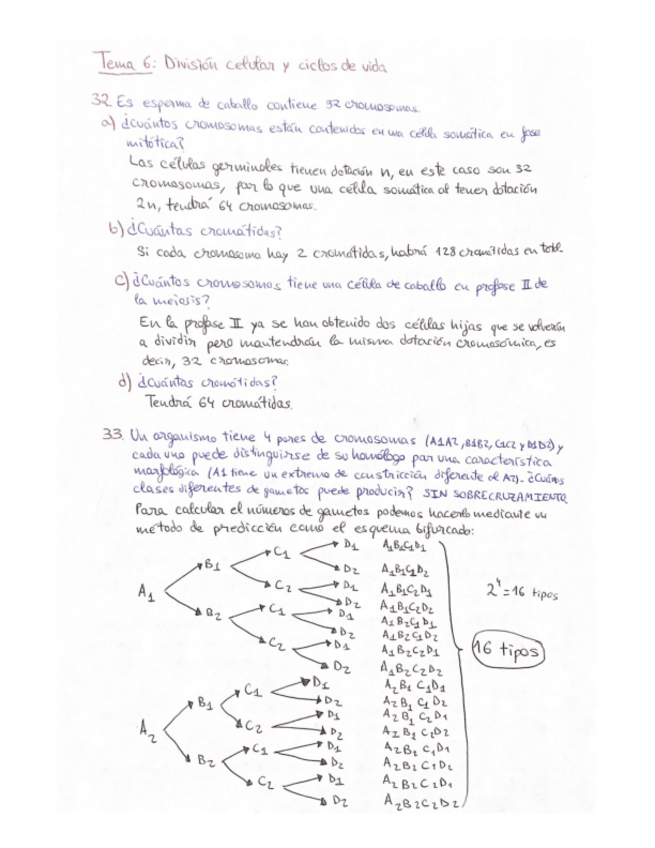 Tema 6: División celular y ciclos de vida
32 Es esperma de caballo contiene 32 cromosomas.
a) ¿cuántos cromosomas están contenidos en una célula somática en fase
mitótica?
Las células germinales tienen dotación n, en este caso son 32
cromosomas, por lo que una célula somática al tener dotación
2n, tendrá 64 cromosomas.
b) ¿Cuántas cromátidas?
Si cada cromosoma hay 2 cromátidas, habrá 128 cromátidas en total.
c) ¿Cuántos cromosomas tiene una célula de caballo en profase II de
la meiosis?
En la profase II ya se han obtenido dos células hijas que se volverán
a dividir pero mantendrán la misma dotación cromosómica, es
decir, 32 cromosomas.
d) ¿Cuántas cromátidas?
Tendrá 64 cromátidas.
33. Un organismo tiene 4 pares de cromosomas (A1A2, B1B2, C1C2 y D1D2) y
cada uno puede distinguirse de su homólogo por una característica
morfológica (A1 tiene un extremo de constricción diferente al A2). ¿Cuántas
clases diferentes de gametos puede producir? SIN SOBRECRUZAMIENTO.
Para calcular el números de gametos podemos hacerlo mediante un
método de predicción como el esquema bifurcado:
A1 B1 C1 D1 A1B1C1D1
D2 A1B1C1D2
C2 D1 A1B1C2D1
D2 A1B1C2D2
B2 C1 D1 A1B2C1D1
D2 A1B2C1D2
C2 D1 A1B2C2D1
D2 A1B2C2D2
2⁴=16 tipos
16 tipos
A2 B1 C1 D1 A2B1C1D1
D2 A2B1C1D2
C2 D1 A2B1C2D1
D2 A2B1C2D2
B2 C1 D1 A2B2C1D1
D2 A2B2C1D2
C2 D1 A2B2C2D1
D2 A2B2C2D2